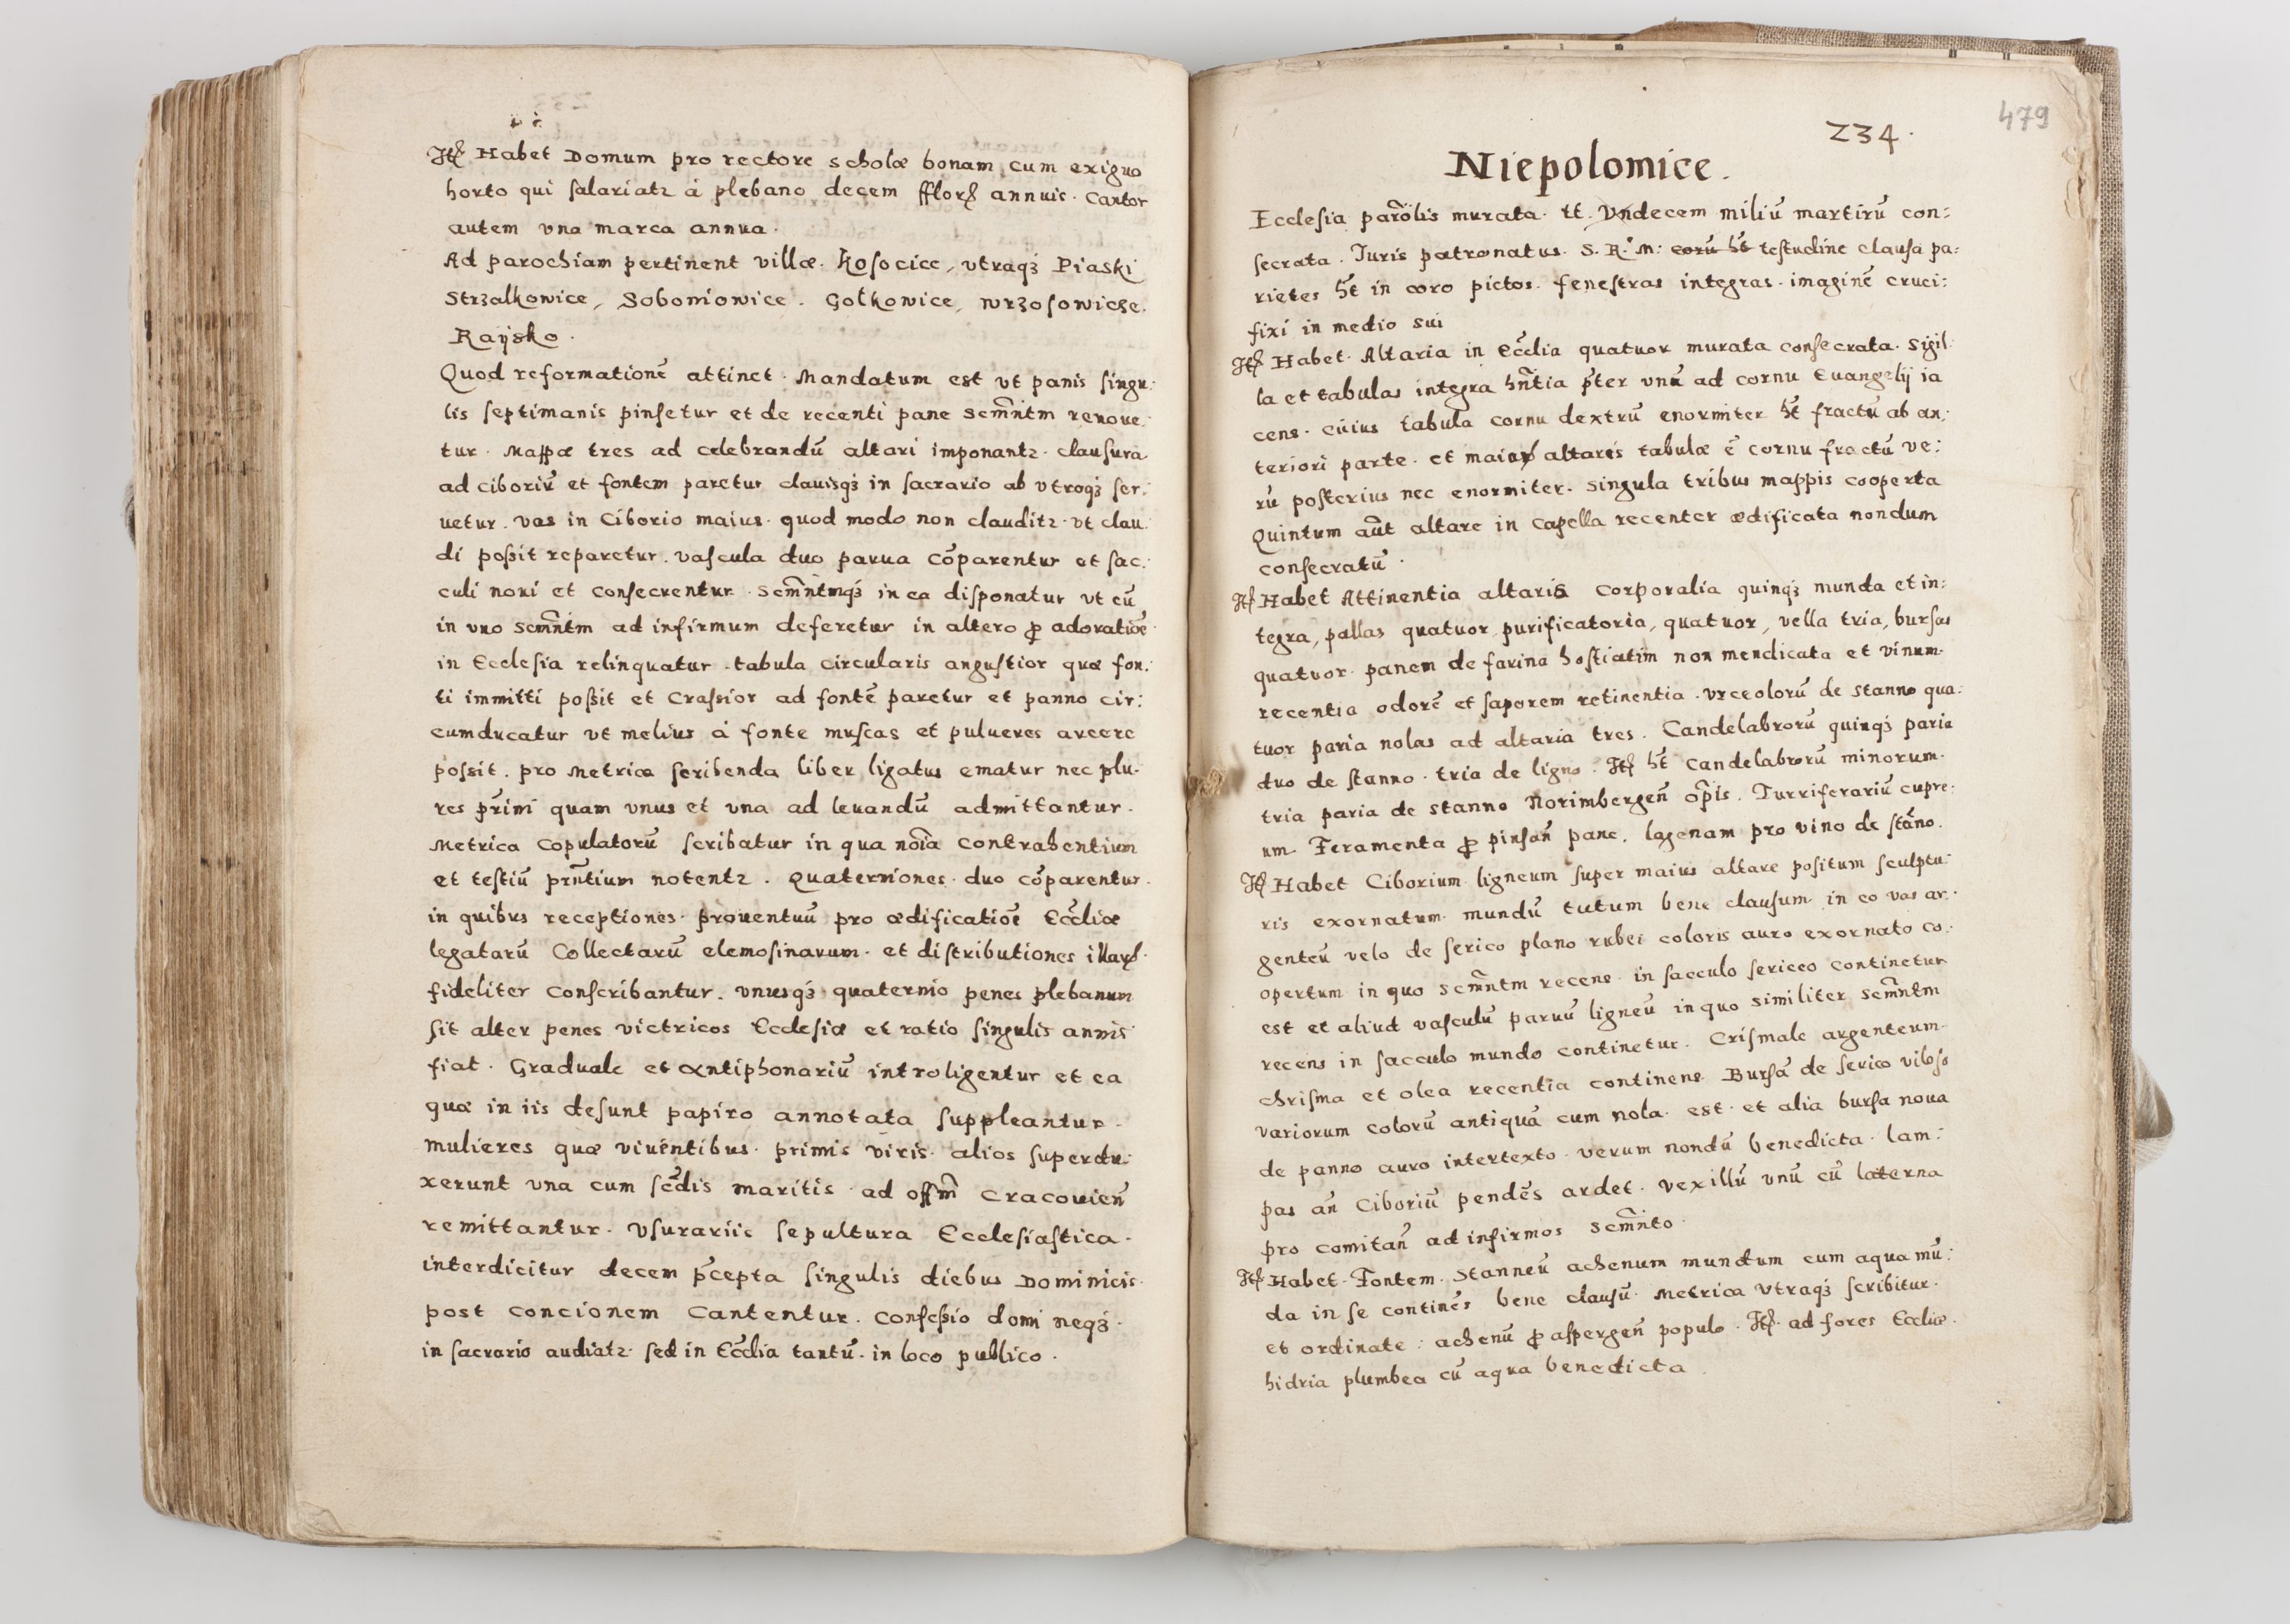 Itꝭ Habet Domum pro rectore scholæ bonam cum exiguo
horto qui salariatꝛ á plebano decem fflorꝝ annuis. Cantor
autem vna marca annua.
Ad parochiam pertinent villæ. Kosocice, vtraqꝫ Piaski
Strzalkowice, Soboniowice. Golkowice, Wrzosowicze.
Raÿsko.
Quod reformationē attinet. Mandatum est vt panis singu:
lis septimanis pinsetur et de recenti pane scm̄ntm renoue:
tur. Mappæ tres ad celebrandū altari imponantꝛ. clausura
ad ciboriū et fontem paretur clauisqꝫ in sacrario ab vtroqꝫ ser:
uetur. vas in Ciborio maius. quod modo non clauditꝛ. vt clau:
di possit reparetur. vascula duo parua cōparentur et sac:
culi noui et consecrentur. scm̄ntmqꝫ in ea disponatur vt cū
in vno scm̄ntm ad infirmum deferetur in altero ꝓ adoratiōe
in Ecclesia relinquatur. tabula circularis angustior quæ fon:
ti immitti possit et Crassior ad fontē paretur et panno cir:
cumducatur vt melius á fonte muscas et pulueres arcere
possit. pro Metrica scribenda liber ligatus ematur nec plu:
res p̄rimi quam vnus et vna ad leuandū admittantur.
Metrica Copulatorū scribatur in qua noīa Contrahentium
et testiū prn̄tium notentꝛ. Quaterniones duo cōparentur.
in quibus receptiones prouentuū pro ædificatiōe Eccl̄iæ
legatarū Collectarū elemosinarum. et distributiones illarꝝ.
fideliter conscribantur. vnusqꝫ quaternio penes plebanum
sit alter penes victricos Ecclesiæ et ratio singulis annis
fiat. Graduale et antiphonariū introligentur et ea
quæ in iis desunt papiro annotata suppleantur.
mulieres quæ viuentibus. primis viris alios superdu:
xerunt vna cum scd̄is maritis ad offm̄ Cracouien̄
remittantur. Vsurariis sepultura Ecclesiastica.
interdicitur decem p̄cepta singulis diebus Dominicis.
post concionem Cantentur. Confessio domi neqꝫ.
in sacrario audiatꝛ. sed in Eccl̄ia tantū. in loco publico.
479
234.
Niepolomice.
Ecclesia parōlis murata. tt. Vndecem miliū martirū con:
secrata. Iuris patronatus. S. R. M: corū ht̄ testudine clausa pa:
rietes ht̄ in coro pictos. fenestras integras. imaginē cruci:
fixi in medio sui
Itꝭ Habet. Altaria in Eccl̄ia quatuor murata consecrata. Sigil:
la et tabulas integra hn̄tia p̄ter vnū ad cornu Euangelij ia
cens. cuius tabula cornu dextrū enormiter ht̄ fractū ab an:
teriori parte. et maioris altaris tabulæ ē cornu fractū ve:
rū posterius nec enormiter. singula tribus mappis cooperta
Quintum aūt altare in Capella recenter ædificata nondum
consecratū.
Itꝭ Habet Attinentia altaris Corporalia quinqꝫ munda et in:
tegra, pallas quatuor, purificatoria, quatuor, vella tria, bursas
quatuor. panem de farina hostiatim non mendicata et vinum.
recentia odorē et saporem retinentia. vrceolorū de stanno qua:
tuor paria nolas ad altaria tres. Candelabrorū quinqꝫ paria
duo de stanno. tria de ligno. Itꝭ ht̄ Candelabrorū minorum.
tria paria de stanno Norimbergen̄ op̄is. Turriferariū cupre:
um. Feramenta ꝓ pinsan̄ pane. lagenam pro vino de stāno.
Itꝭ Habet Ciborium ligneum super maius altare positum sculptu:
ris exornatum mundū tutum bene clausum in eo vas ar:
genteū velo de serico plano rubei coloris auro exornato co:
opertum in quo scm̄ntm recens in sacculo sericeo continetur
est et aliud vasculū paruū ligneū in quo similiter scm̄ntm
recens in sacculo mundo continetur. Crismale argenteum
chrisma et olea recentia continens Bursā de serico viloso
variorum colorū antiquā cum nola. est. et alia bursa noua
de panno auro intertexto. verum nondū benedicta. lam:
pas an̄ Ciboriū pendēs ardet. vexillū vnū cū laterna
pro comitan̄ ad infirmos scm̄nto.
Itꝭ Habet. Fontem. stanneū achenum mundum cum aqua mū:
da in se continēs bene clausū. Metrica vtraqꝫ scribitur.
et ordinate. achenū ꝓ aspergen̄ populo. Itꝭ. ad fores Eccl̄iæ.
hidria plumbea cū aqua benedicta.